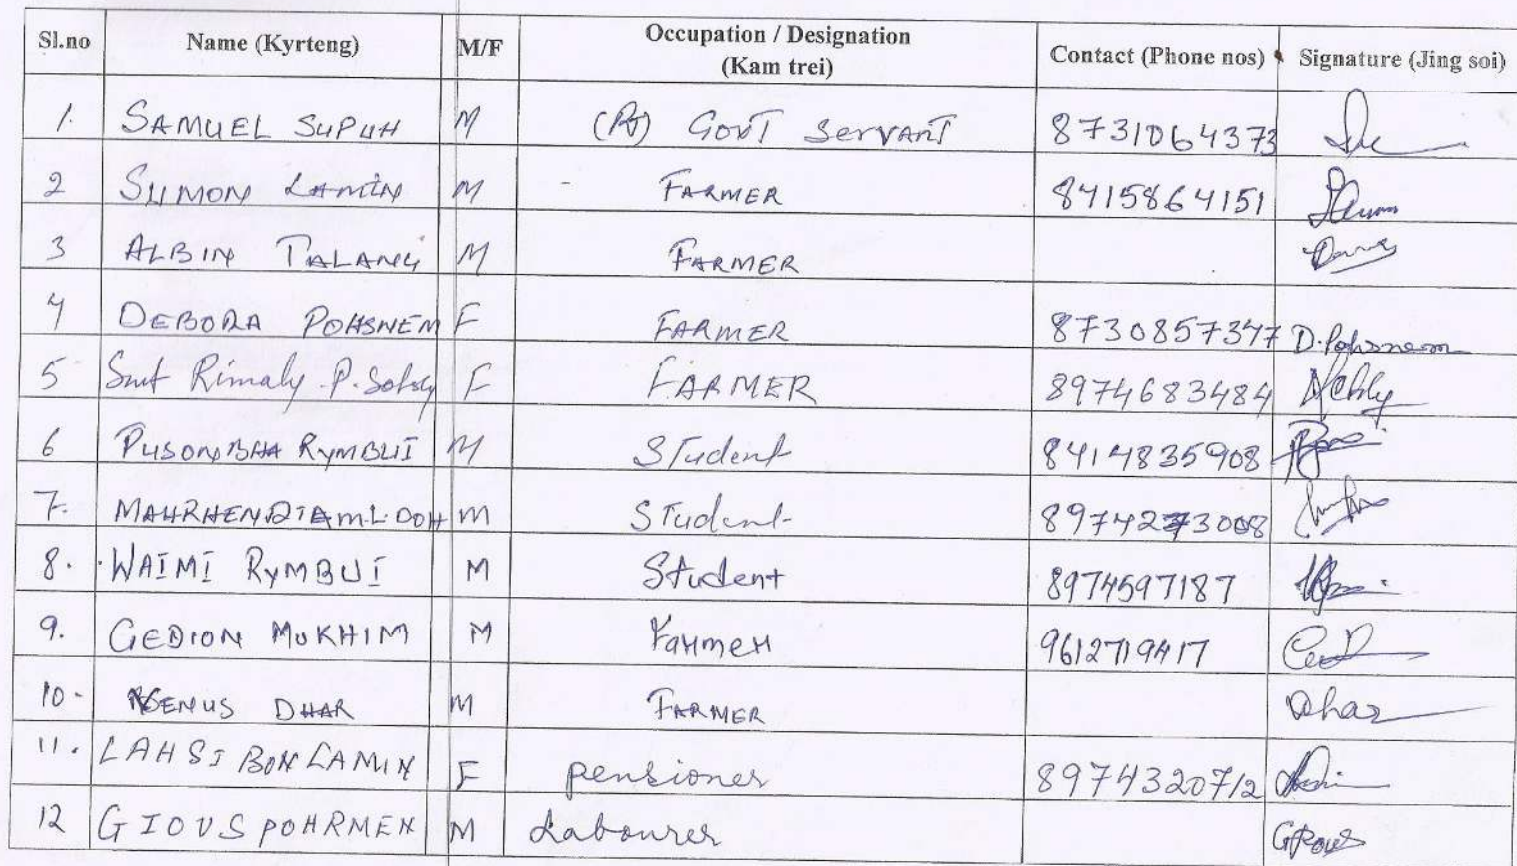 Sl.no Name (Kyrteng) M/F Occupation / Designation (Kam trei) Contact (Phone nos) Signature (Jing soi)
1. SAMUEL SUPUH M (Rt) GOVT Servant 8731064373
2 SUMON LAMIN M - FARMER 8415864151
3 ALBIN TALANG M FARMER
4 DEBORA POHSNEM F FARMER 8730857347 D.Pohsnem
5 Smt Rimaly P. F FARMER 8974683484
6 PUSONBHA RYMBUI M Student 8414835908
7. M Student
8. WAIMI RYMBUI M Student 8974597187
9. GEDION MUKHIM M Farmer 9612719417
10 - DHAR M FARMER Dhar
11. LAHSI BON LAMIN F pensioner 8974320712
12 GIOUS POHRMEN M Labourer